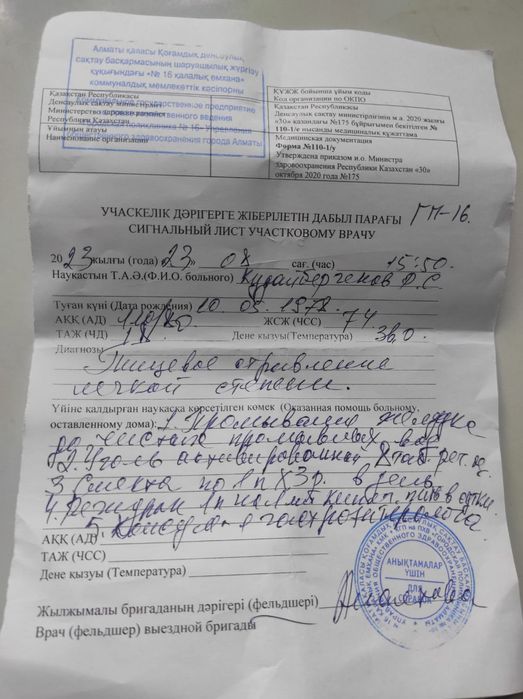 Алматы қаласы Қоғамдық денсаулық
сақтау басқармасының шаруашылық жүргізу
құқығындағы «№ 16 қалалық емхана»
коммуналдық мемлекеттік кәсіпорны
Қазақстан Республикасы
Денсаулық сақтау министрлігі
Министерство здравоохранения
Республики Казахстан
Ұйымның атауы
Наименование организации
ҚҰЖЖ бойынша ұйым коды
Код организации по ОКПО
Қазақстан Республикасы
Денсаулық сақтау министрлігінің м.а. 2020 жылғы
«30» қазандағы №175 бұйрығымен бекітілген №
110-1/е нысанды медициналық құжаттама
Медицинская документация
Форма №110-1/у
Утверждена приказом и.о. Министра
здравоохранения Республики Казахстан «30»
октября 2020 года №175
УЧАСКЕЛІК ДӘРІГЕРГЕ ЖІБЕРІЛЕТІН ДАБЫЛ ПАРАҒЫ ГП-16.
СИГНАЛЬНЫЙ ЛИСТ УЧАСТКОВОМУ ВРАЧУ
2023 жылғы (года) 23 » 08 сағ. (час) 15:50.
Науқастын Т.А.Ә.(Ф.И.О. больного)
Туған күні (Дата рождения) 10. 03. 1978.
АҚҚ (АД) 110/80 ЖСЖ (ЧСС) 74
ТАЖ (ЧД) 18. Дене қызуы(Температура) 36,0.
Диагнозы
Пищевое отравление
легкой степени.
Үйіне қалдырған науқасқа көрсетілген көмек (Оказанная помощь больному,
оставленному дома): 1. Промывания желудка
до чистых промывных вод
2. Уголь активированный
3. Смекта по 1 п х 3 р. в день
4. Регидрон 1 п на 1 л кипят.
5.
АҚҚ (АД)
ТАЖ (ЧСС)
Дене қызуы (Температура)
Жылжымалы бригаданың дәрігері (фельдшері)
Врач (фельдшер) выездной бригады
АНЫҚТАМАЛАР
ҮШІН
ДЛЯ
СПРАВОК